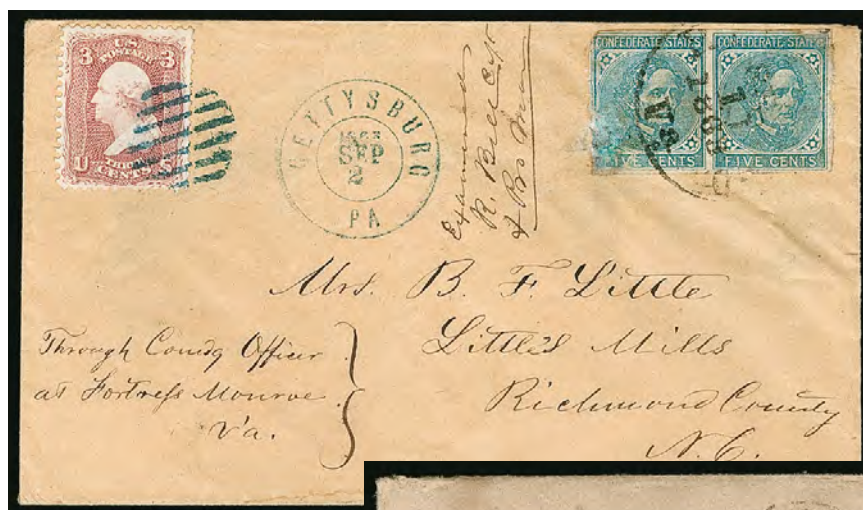 3 U.S. POSTAGE 3
U THREE CENTS S
GETTYSBURG
1863
SEP
2
PA
Examined
R. Bell Capt
& Pro Mar
CONFEDERATE STATES
FIVE CENTS
CONFEDERATE STATES
FIVE CENTS
1863
Mrs. B. F. Little
Little's Mills
Richmond County
N.C.
Through Comdg Officer
at Fortress Monroe
Va.